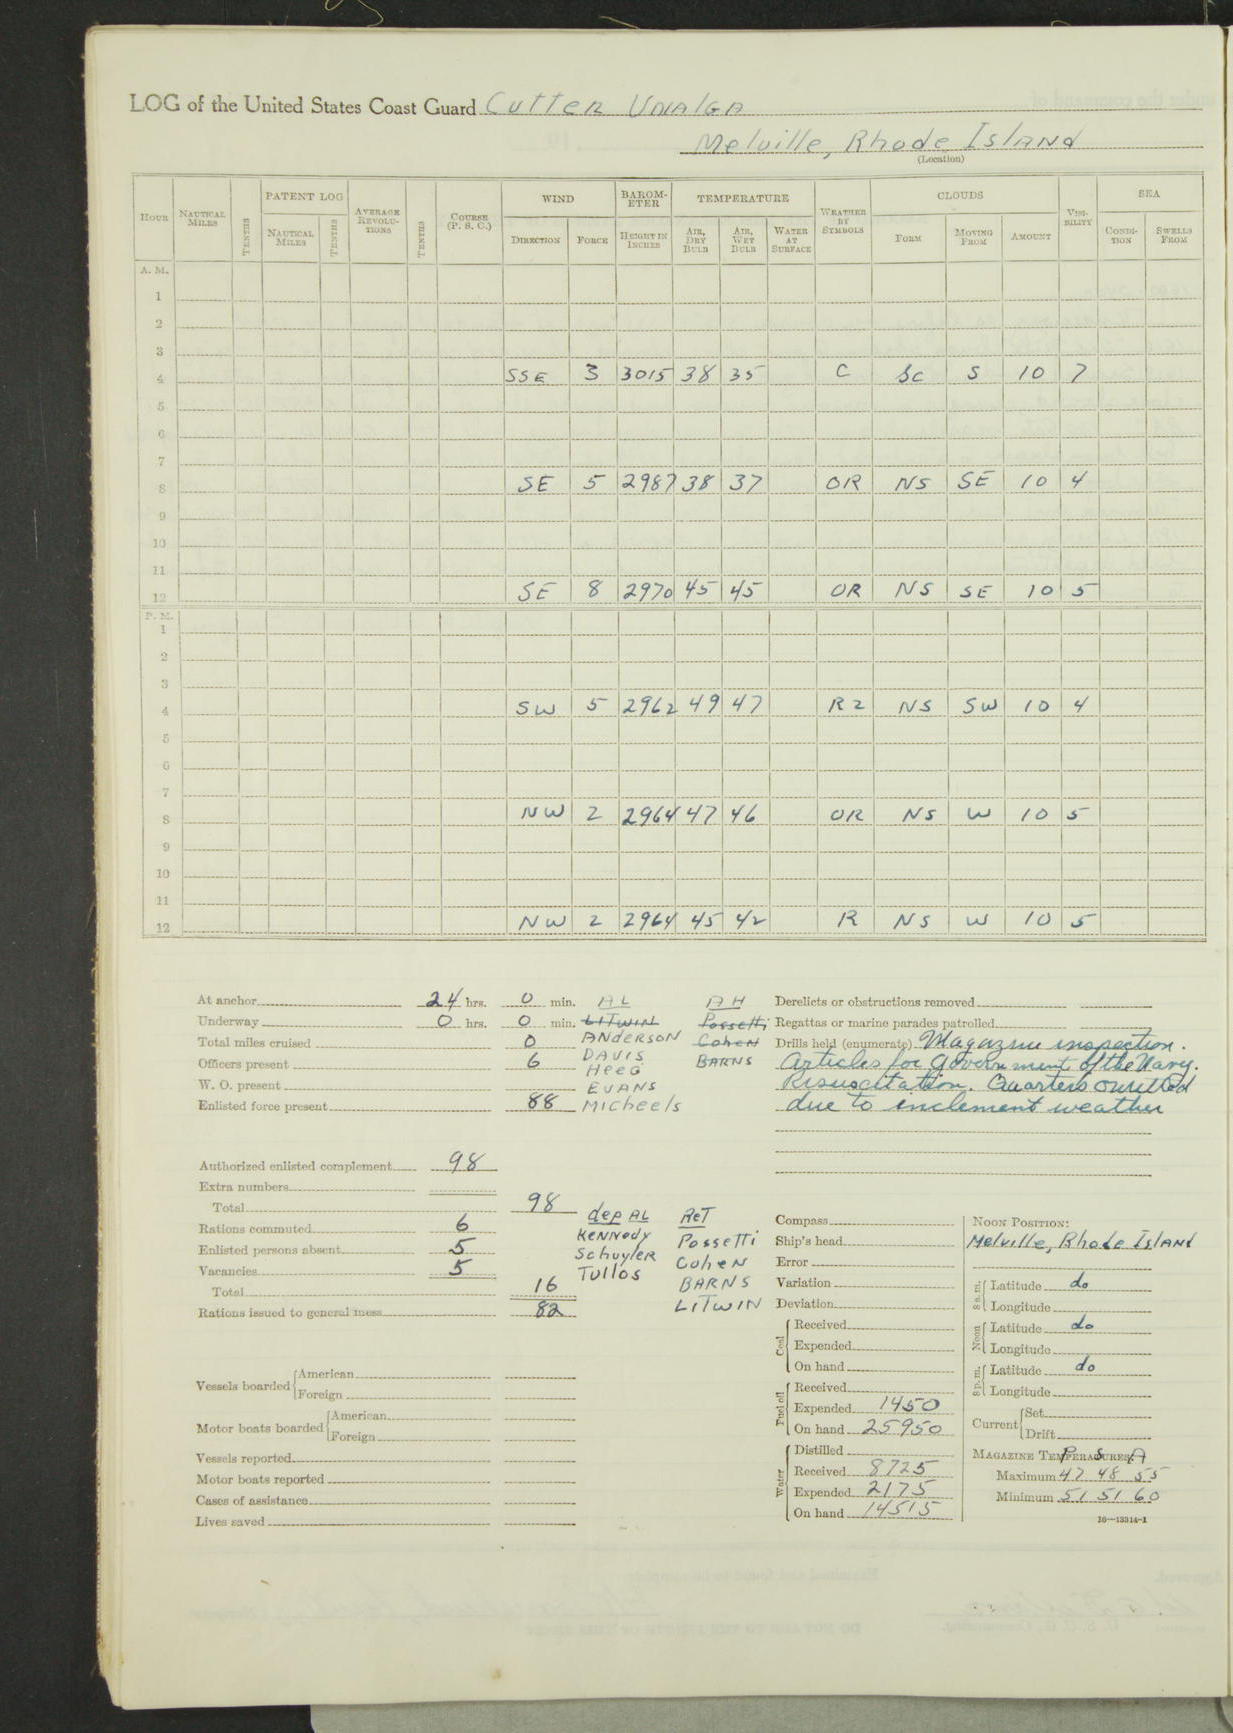 LOG of the United States Coast Guard Cutter Unalga
Melville, Rhode Island
(Location)
HOUR NAUTICAL MILES TENTHS PATENT LOG NAUTICAL MILES TENTHS AVERAGE REVOLU-TIONS TENTHS COURSE (P. S. C.) WIND DIRECTION FORCE BAROM-ETER HEIGHT IN INCHES TEMPERATURE AIR, DRY BULB AIR, WET BULB WATER AT SURFACE WEATHER BY SYMBOLS CLOUDS FORM MOVING FROM AMOUNT VISI-BILITY SEA CONDI-TION SWELLS FROM
A. M.
1
2
3
4 SSE 3 3015 38 35 C Sc S 10 7
5
6
7
8 SE 5 2987 38 37 OR NS SE 10 4
9
10
11
12 SE 8 2970 45 45 OR NS SE 10 5
P. M.
1
2
3
4 SW 5 2962 49 47 RZ NS SW 10 4
5
6
7
8 NW 2 2964 47 46 OR NS W 10 5
9
10
11
12 NW 2 2964 45 42 R NS W 10 5
At anchor 24 hrs. 0 min.
Underway 0 hrs. 0 min.
Total miles cruised 0
Officers present 6
W. O. present
Enlisted force present 88
AL
LITWIN
ANDERSON
DAVIS
Heeg
EVANS
Micheels
AH
Possetti
Cohen
BARNS
Derelicts or obstructions removed
Regattas or marine parades patrolled
Drills held (enumerate) Magazine inspection.
Articles for Government of the Navy.
Resuscitation. Quarters omitted
due to inclement weather
Authorized enlisted complement 98
Extra numbers
Total 98
Rations commuted 6
Enlisted persons absent 5
Vacancies 5
Total 16
Rations issued to general mess 82
dep AL
Kennedy
Schuyler
Tullos
RET
Possetti
Cohen
BARNS
LITWIN
Vessels boarded American
Foreign
Motor boats boarded American
Foreign
Vessels reported
Motor boats reported
Cases of assistance
Lives saved
Compass
Ship's head
Error
Variation
Deviation
Coal Received
Expended
On hand
Fuel oil Received
Expended 1450
On hand 25950
Water Distilled
Received 8725
Expended 2175
On hand 14515
NOON POSITION:
Melville, Rhode Island
8 a.m. Latitude do
Longitude
Noon Latitude do
Longitude
8 p.m. Latitude do
Longitude
Current Set
Drift
MAGAZINE TEMPERATURES: P S A
Maximum 47 48 55
Minimum 51 51 60
16—13314-1